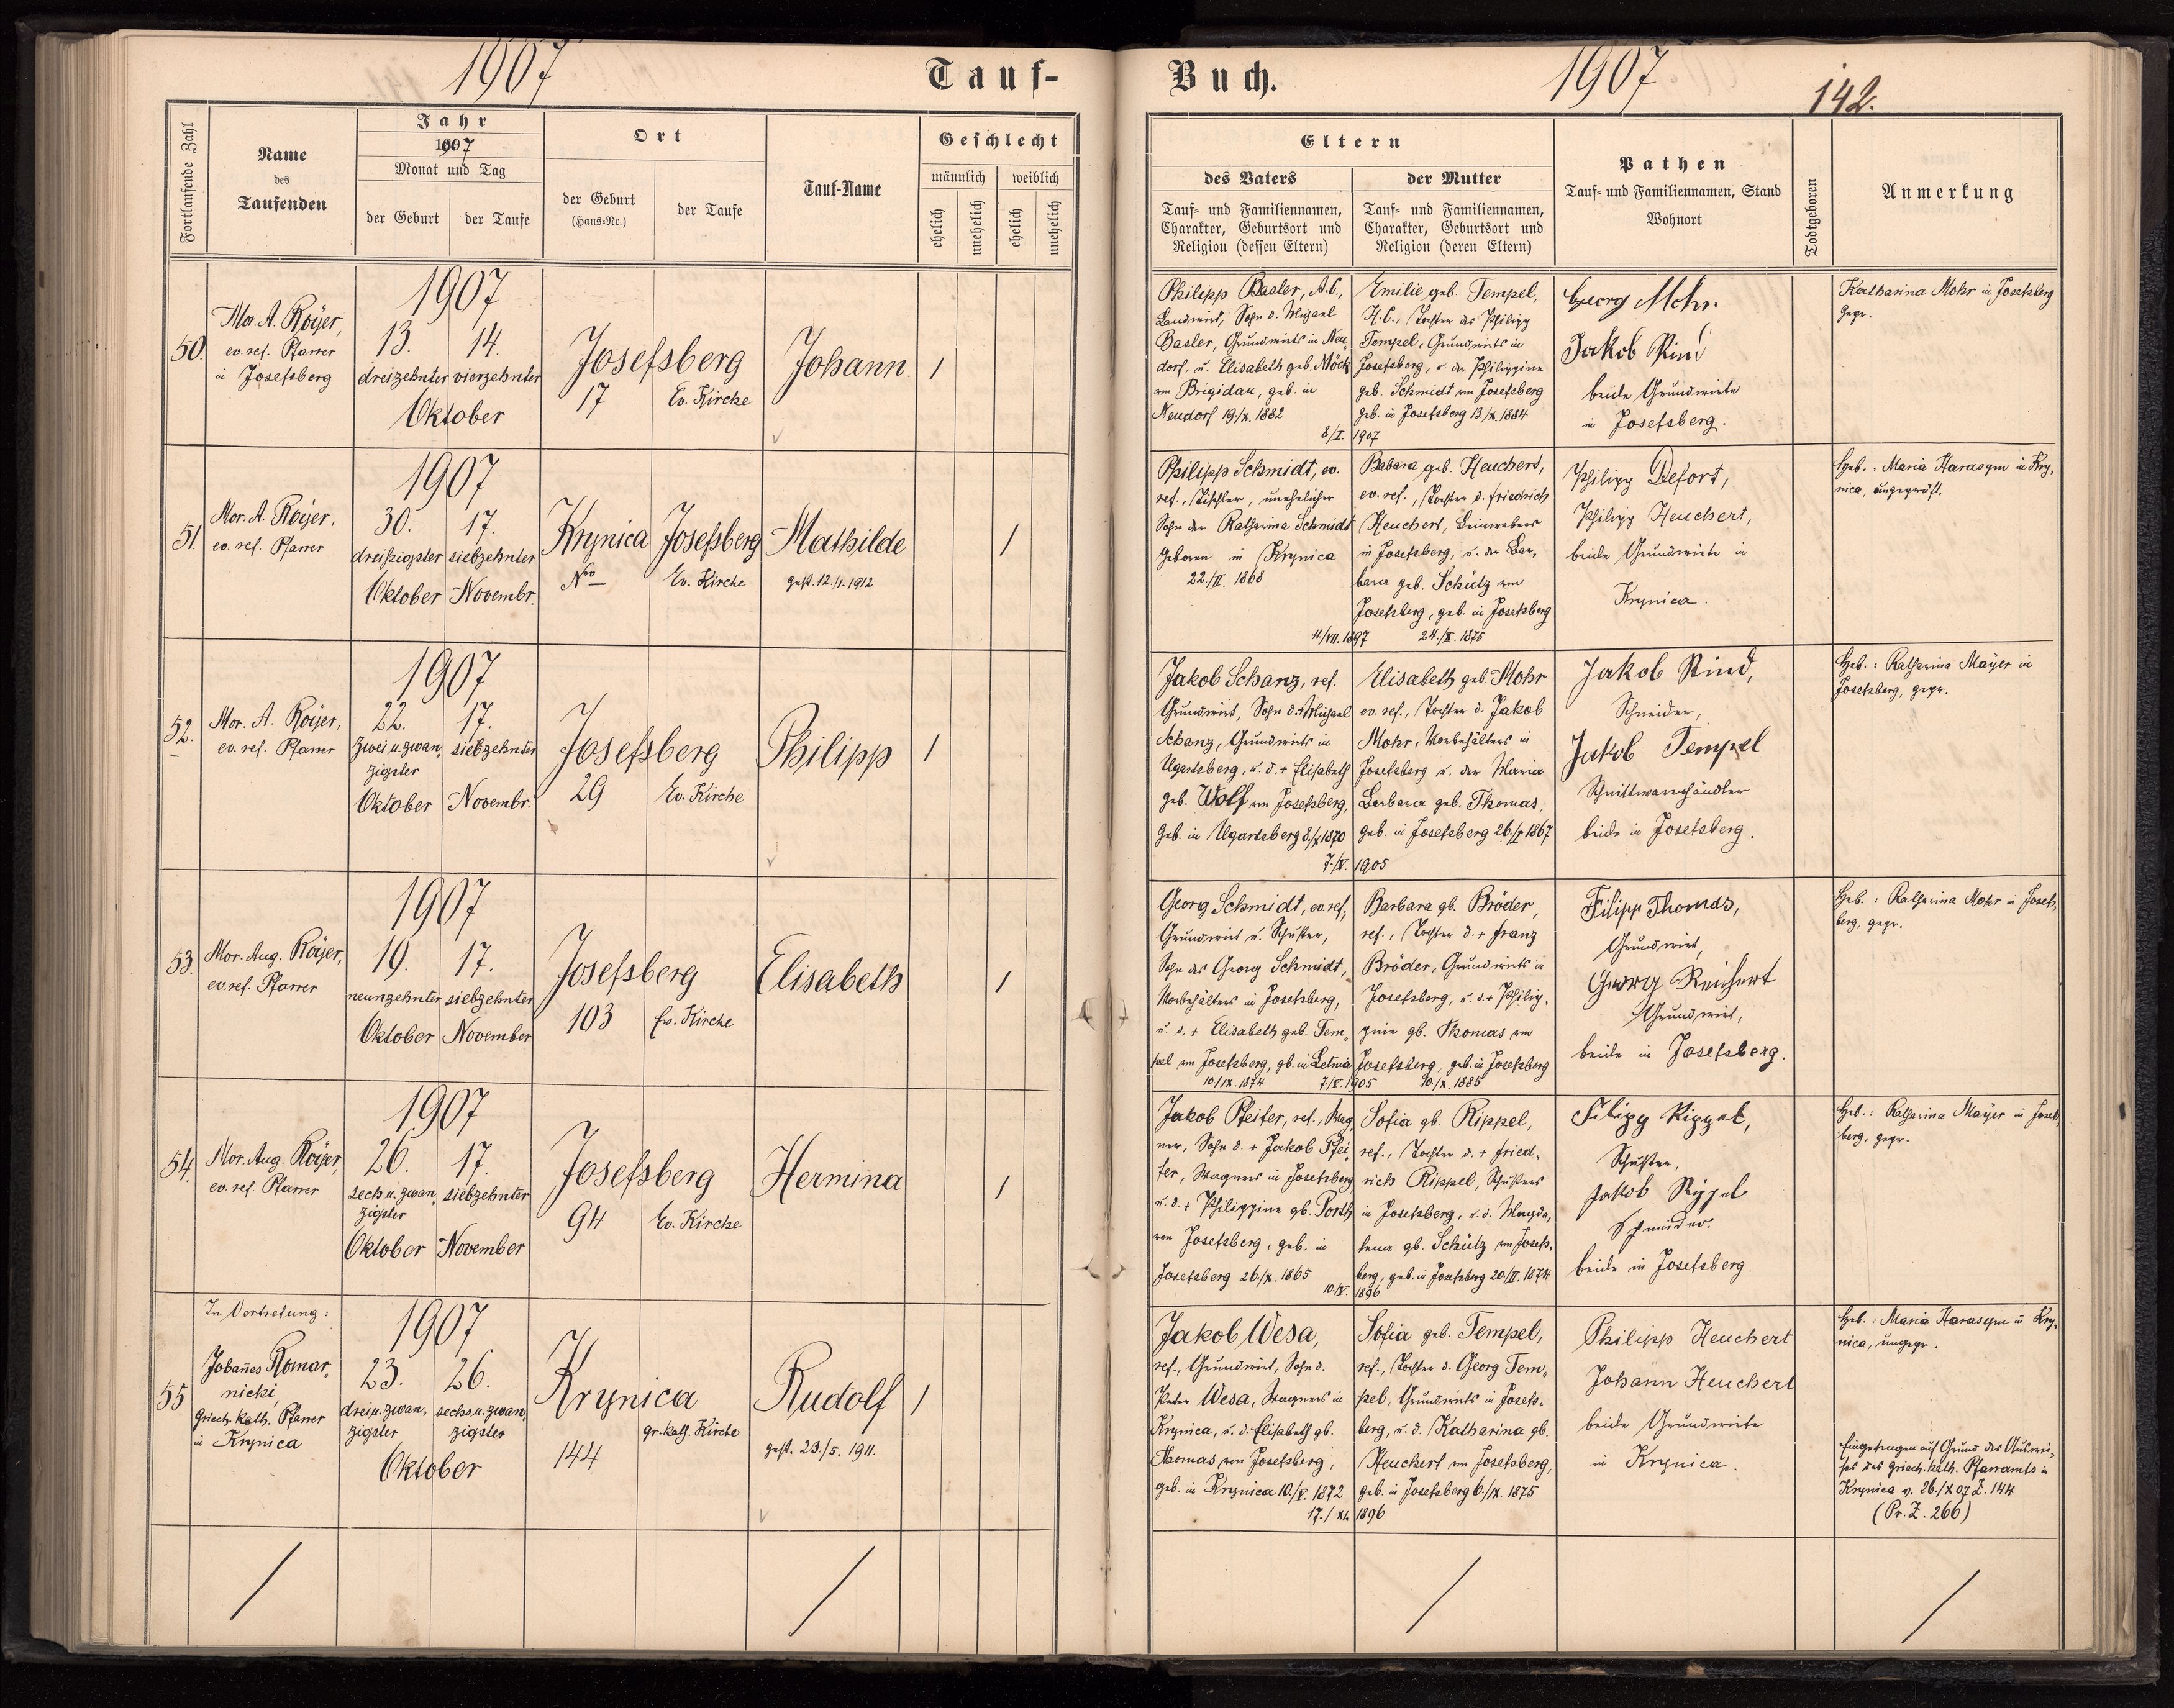 1907
Tauf-
Buch.
1907
142.
Fortlaufende Zahl
Name
des
Taufenden
Jahr
1907
Monat und Tag
der Geburt
der Taufe
Ort
der Geburt
(Haus-Nr.)
der Taufe
Tauf-Name
Geschlecht
männlich
weiblich
ehelich
unehelich
ehelich
unehelich
Eltern
des Vaters
Tauf- und Familiennamen,
Charakter, Geburtsort und
Religion (dessen Eltern)
der Mutter
Tauf- und Familiennamen,
Charakter, Geburtsort und
Religion (deren Eltern)
Pathen
Tauf- und Familiennamen, Stand
Wohnort
Todtgeboren
Anmerkung
50.
Mor. A. Royer,
ev. ref. Pfarrer
in Josefsberg
1907
13. 14.
dreizehnter vierzehnter
Oktober
Josefsberg
17 Ev. Kirche
Johann.
1
Philipp Basler, A.C.,
Landwirt, Sohn d. Michael
Basler, Grundwirts in Neu-
dorf, u. Elisabeth geb. Möck
von Brigidau, geb. in
Neudorf 19./X. 1882
8/I. 1907
Emilie geb. Tempel,
H.C., Tochter des Philipp
Tempel, Grundwirts in
Josefsberg, u. der Philippine
geb. Schmidt von Josefsberg
geb. in Josefsberg 13./X. 1884
Georg Mohr.
Jakob Rind
beide Grundwirte
in Josefsberg.
Katharina Mohr in Josefsberg
gepr.
51.
Mor. A. Royer,
ev. ref. Pfarrer
1907
30. 17.
dreißigster siebzehnter
Oktober Novembr.
Krynica Josefsberg
Nro – Ev. Kirche
Mathilde
gest. 12./1. 1912
1
Philipp Schmidt, ev.
ref., Tischler, unehelicher
Sohn der Katharina Schmidt
geboren in Krynica
22./II. 1868
11/VII. 1897
Babara geb. Heuchert,
ev. ref., Tochter d. Friedrich
Heuchert, Leinwebers
in Josefsberg, u. der Bar-
bara geb. Schütz von
Josefsberg, geb. in Josefsberg
24./X. 1875
Philipp Defort,
Philipp Heuchert,
beide Grundwirte in
Krynica.
Heb.: Maria Harasym in Kry-
nica, ungeprüft.
52.
Mor. A. Royer,
ev. ref. Pfarrer
1907
22. 17.
zwei u. zwan- siebzehnter
zigster
Oktober Novembr.
Josefsberg
29 Ev. Kirche
Philipp
1
Jakob Schanz, ref.
Grundwirt, Sohn d. + Michael
Schanz, Grundwirts in
Ugartsberg, u. d. + Elisabeth
geb. Wolf von Josefsberg,
geb. in Ugartsberg 8./X 1870
7./V. 1905
Elisabeth geb. Mohr
ev. ref., Tochter d. Jakob
Mohr, Vorbehälters in
Josefsberg u. der Maria
Barbara geb. Thomas,
geb. in Josefsberg 26./I 1867
Jakob Rind,
Schneider,
Jakob Tempel
Schnittwarenhändler
beide in Josefsberg.
Heb.: Katharina Mayer in
Josefsberg, gepr.
53.
Mor. Aug. Royer,
ev. ref. Pfarrer
1907
19. 17.
neunzehnter siebzehnter
Oktober November
Josefsberg
103 Ev. Kirche
Elisabeth
1
Georg Schmidt, ev. ref.,
Grundwirt u. Schuster,
Sohn des Georg Schmidt,
Vorbehälters in Josefsberg,
u. d. + Elisabeth geb. Tem-
pel von Josefsberg, gb. in Letnia
10./IX. 1874 7./V. 1905
Barbara gb. Bröder,
ref., Tochter d. + Franz
Bröder, Grundwirts in
Josefsberg, u. d. + Philip-
pine gb. Thomas von
Josefsberg, geb. in Josefsberg
10./X. 1885
Filipp Thomas,
Grundwirt,
Georg Reichert
Grundwirt,
beide in Josefsberg.
Heb.: Katharina Mohr in Josefs-
berg, gepr.
54.
Mor. Aug. Royer,
ev. ref. Pfarrer
1907
26. 17.
sechs u. zwan- siebzehnter
zigster
Oktober November
Josefsberg
94 Ev. Kirche
Hermina
1
Jakob Pfeifer, ref., Wag-
ner, Sohn d. + Jakob Pfei-
fer, Wagners in Josefsberg
u. d. + Philippine gb. Porth
von Josefsberg, geb. in
Josefsberg 26./X. 1865
10./V. 1896
Sofia gb. Rippel,
ref., Tochter d. + Fried-
rich Rippel, Schusters
in Josefsberg, u. d. Magda-
lena gb. Schütz von Josefs-
berg, geb. in Josefsberg 20./II. 1874
Filipp Rippel,
Schuster,
Jakob Rippel
Schneider.
beide in Josefsberg.
Heb.: Katharina Mayer in Josefs-
berg, gepr.
55
In Vertretung:
Johannes Komar-
nicki,
Griech. kath. Pfarrer
in Krynica
1907
23. 26.
drei u. zwan- sechs u. zwan-
zigster zigster
Oktober
Krynica
gr. kath. Kirche
144
Rudolf
gest. 23./5. 1911.
1
Jakob Wesa,
ref., Grundwirt, Sohn d.
Peter Wesa, Wagners in
Krynica, u. d. Elisabeth gb.
Thomas von Josefsberg,
geb. in Krynica 10./V. 1872
17./XI. 1896
Sofia geb. Tempel,
ref., Tochter d. Georg Tem-
pel, Grundwirts in Josefs-
berg, u. d. Katharina gb.
Heuchert von Josefsberg,
geb. in Josefsberg 6./IX. 1875
Philipp Heuchert
Johann Heuchert
beide Grundwirte
in Krynica.
Heb.: Maria Harasym in Kry-
nica, ungepr.
Eingetragen auf Grund des Auswei-
ses des Griech. kath. Pfarramts in
Krynica v. 26./X 07 Z. 144
(Pr. Z. 266)